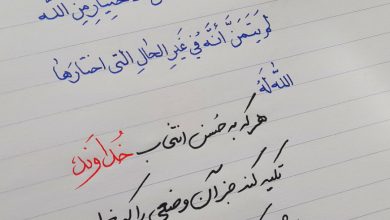 الاختيار من الله
لم يتمنّ أنّه في غير الحال التي اختارها
الله له
هر که به حسن انتخاب خداوند
تکیه کند جز آن وضعی را که